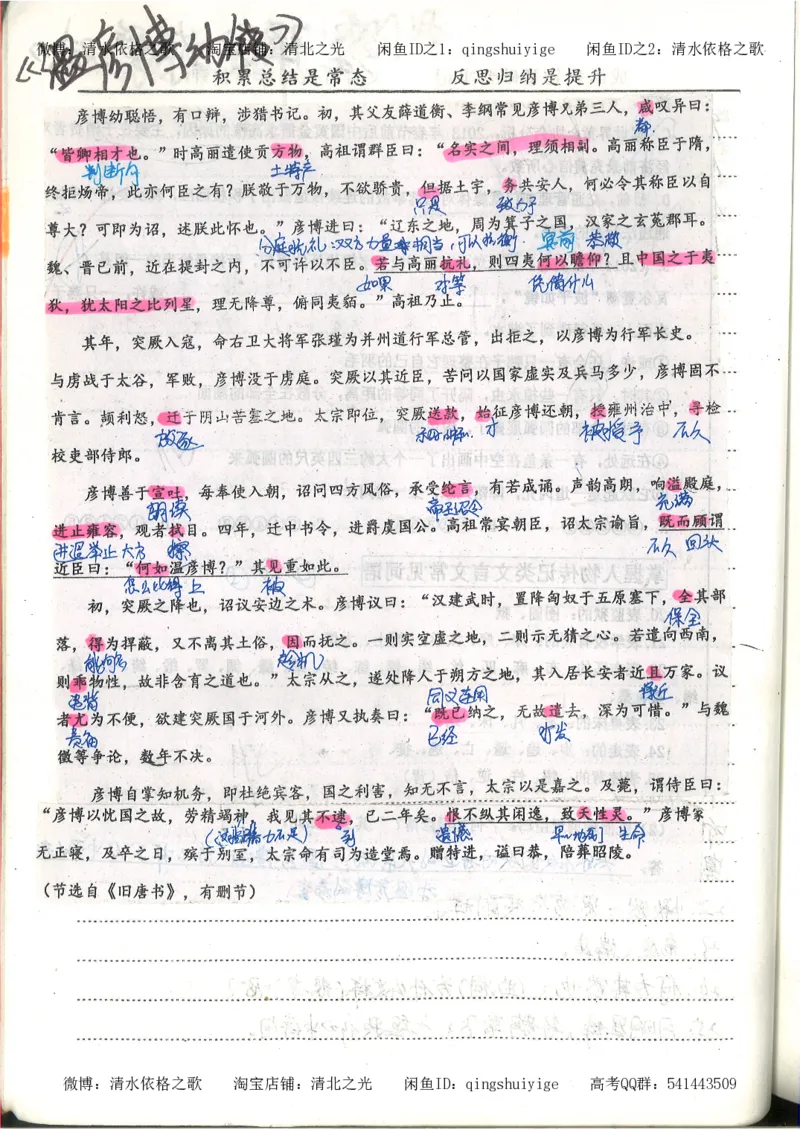 微博：清水依格之歌 淘宝店铺：清北之光 闲鱼ID之1：qingshuiyige 闲鱼ID之2：清水依格之歌
《温彦博纳谏》
积累总结是常态 反思归纳是提升
彦博幼聪悟，有口辩，涉猎书记。初，其父友薛道衡、李纲常见彦博兄弟三人，咸叹异曰：
都
“皆卿相才也。”时高丽遣使贡方物，高祖谓群臣曰：“名实之间，理须相副。高丽称臣于隋，
判断句 土特产
终拒炀帝，此亦何臣之有？朕敬于万物，不欲骄贵，但据土宇，务共安人，何必令其称臣以自
只是 致力于
尊大？可即为诏，述朕此怀也。”彦博进曰：“辽东之地，周为箕子之国，汉家之玄菟郡耳。
分庭抗礼：双方力量相当，可以抗衡 恭敬
魏、晋已前，近在提封之内，不可许以不臣。若与高丽抗礼，则四夷何以瞻仰？且中国之于夷
如果 对等 凭借什么
狄，犹太阳之比列星，理无降尊，俯同夷貊。”高祖乃止。
其年，突厥入寇，命右卫大将军张瑾为并州道行军总管，出拒之，以彦博为行军长史。
与虏战于太谷，军败，彦博没于虏庭。突厥以其近臣，苦问以国家虚实及兵马多少，彦博固不
肯言。颉利怒，迁于阴山苦寒之地。太宗即位，突厥送款，始征彦博还朝，授雍州治中，寻检
放逐 才 被授予 不久
校吏部侍郎。
彦博善于宣吐，每奉使入朝，诏问四方风俗，承受纶言，有若成诵。声韵高朗，响溢殿庭，
朗读 帝王诏令 充满
进止雍容，观者拭目。四年，迁中书令，进爵虞国公。高祖常宴朝臣，诏太宗谕旨，既而顾谓
进退举止 大方 擦 不久 回头
近臣曰：“何如温彦博？”其见重如此。
怎么比得上 被
初，突厥之降也，诏议安边之术。彦博议曰：“汉建武时，置降匈奴于五原塞下，全其部
保全
落，得为捍蔽，又不离其土俗，因而抚之。一则实空虚之地，二则示无猜之心。若遣向西南，
能够 趁机
则乖物性，故非含育之道也。”太宗从之，遂处降人于朔方之地，其入居长安者近且万家。议
违背 同义连用 接近
者尤为不便，欲建突厥国于河外。彦博又执奏曰：“既已纳之，无故遣去，深为可惜。”与魏
责备 已经 打发
徵等争论，数年不决。
彦博自掌知机务，即杜绝宾客，国之利害，知无不言，太宗以是嘉之。及薨，谓侍臣曰：
“彦博以忧国之故，劳精竭神，我见其不逮，已二年矣。恨不纵其闲逸，致夭性灵。”彦博家
到 遗憾 生命
无正寝，及卒之日，殡于别室，太宗命有司为造堂焉。赠特进，谥曰恭，陪葬昭陵。
（节选自《旧唐书》，有删节）
微博：清水依格之歌 淘宝店铺：清北之光 闲鱼ID：qingshuiyige 高考QQ群：541443509